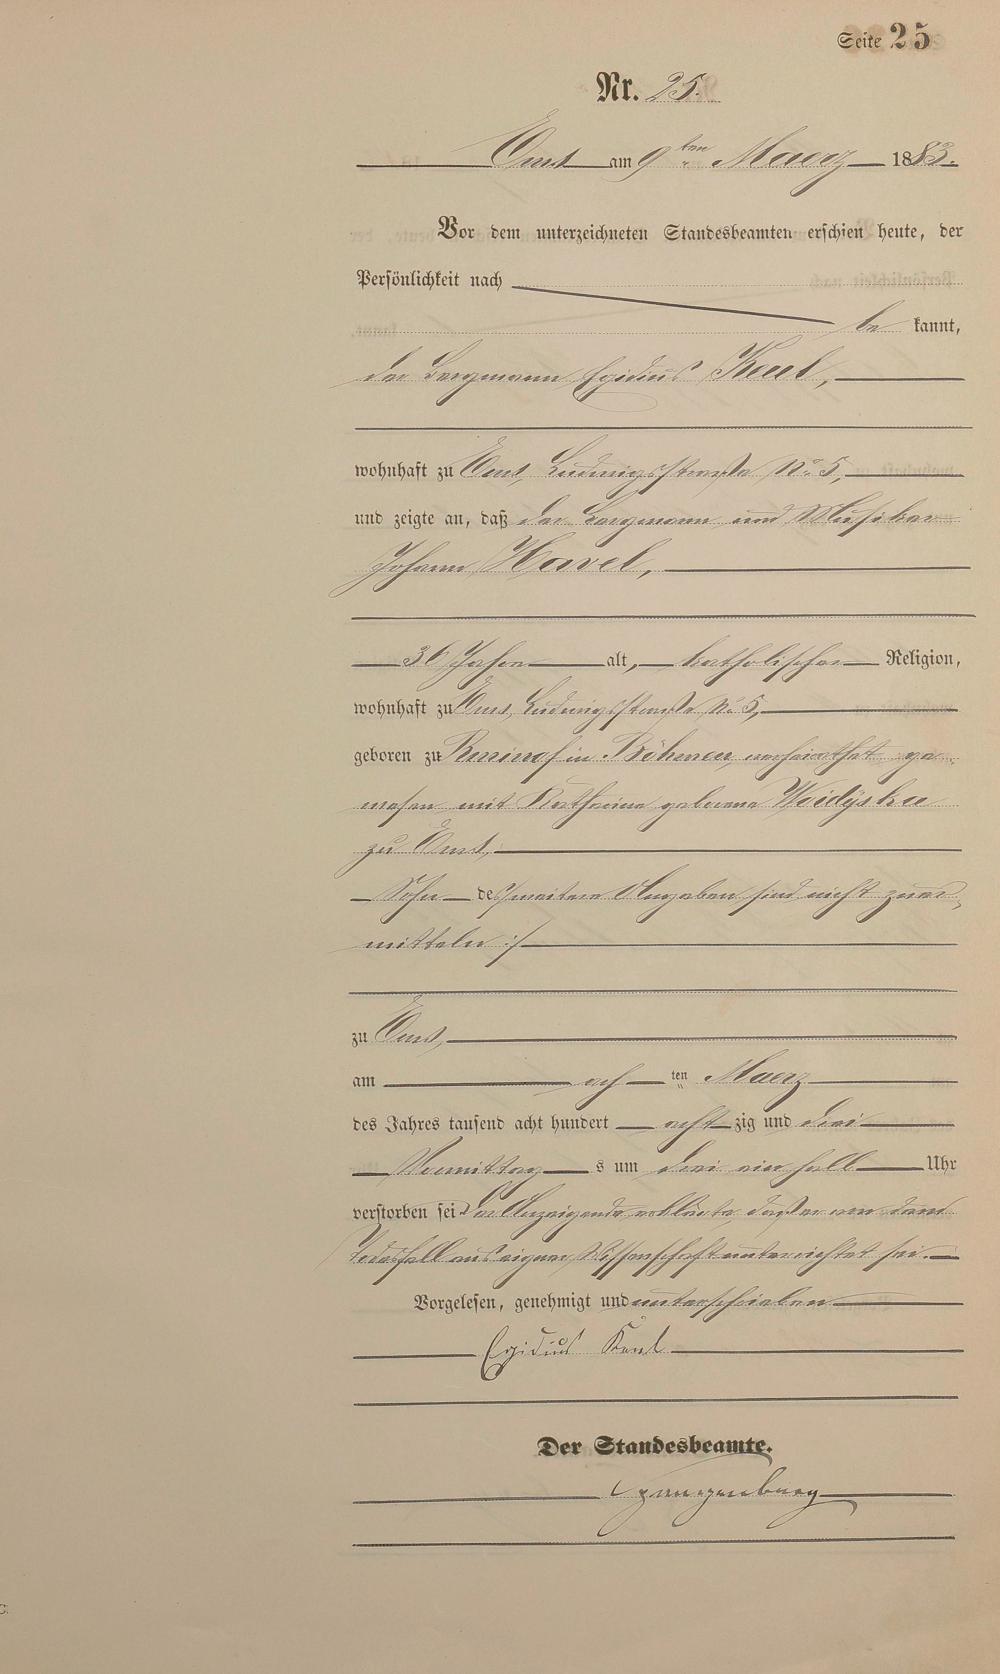 Seite 25
Nr. 25.
Ems am 9ten Maerz 1883.
Vor dem unterzeichneten Standesbeamten erschien heute, der
Persönlichkeit nach
be kannt,
der Bergmann Egidius
wohnhaft zu Ems, Ludwigsstraße No 5,
und zeigte an, daß der Bergmann und Musiker
Johann Havel,
36 Jahre alt, katholischer Religion,
wohnhaft zu Ems, Ludwigsstraße No 5,
geboren zu in Böhmen, verheirathet ge-
wesen mit Katharina geborene
zu Ems,
Sohn des /: weitere Angaben sind nicht zu er-
mitteln :/
zu Ems,
am ach ten Maerz
des Jahres tausend acht hundert acht zig und drei
Vormittag s um drei ein halb Uhr
verstorben sei. Der Anzeigende erklärte, daß er von dem
Todesfall aus eigener Wissenschaft unterrichtet sei.
Vorgelesen, genehmigt und unterschrieben
Egidius
Der Standesbeamte.